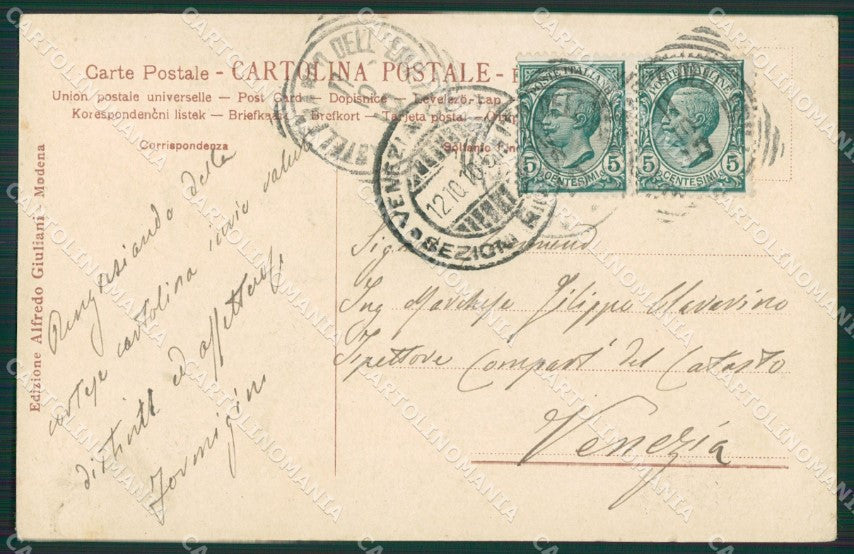 Carte Postale - CARTOLINA POSTALE -
Union postale universelle - Post Card - Dopisnice - Levelező-Lap
Korespondenční listek - Briefkaart - Brefkort - Tarjeta postal
Corrispondenza
Edizione Alfredo Giuliani - Modena
POSTE ITALIANE
5 CENTESIMI 5
POSTE ITALIANE
5 CENTESIMI 5
VENEZIA
12.10.10
SEZIONI
Ringraziando della
cortese cartolina invio saluti
distinti ed affettuosi
Ing Marchese Filippo
Ispettore Compart del Catasto
Venezia
CARTOLINOMANIA